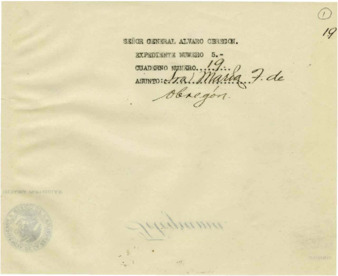 1
19
SEÑOR GENERAL ALVARO OBREGON.
EXPEDIENTE NUMERO 5.-
CUADERNO NUMERO...19...
ASUNTO:. Sra. María F. de
Obregón.